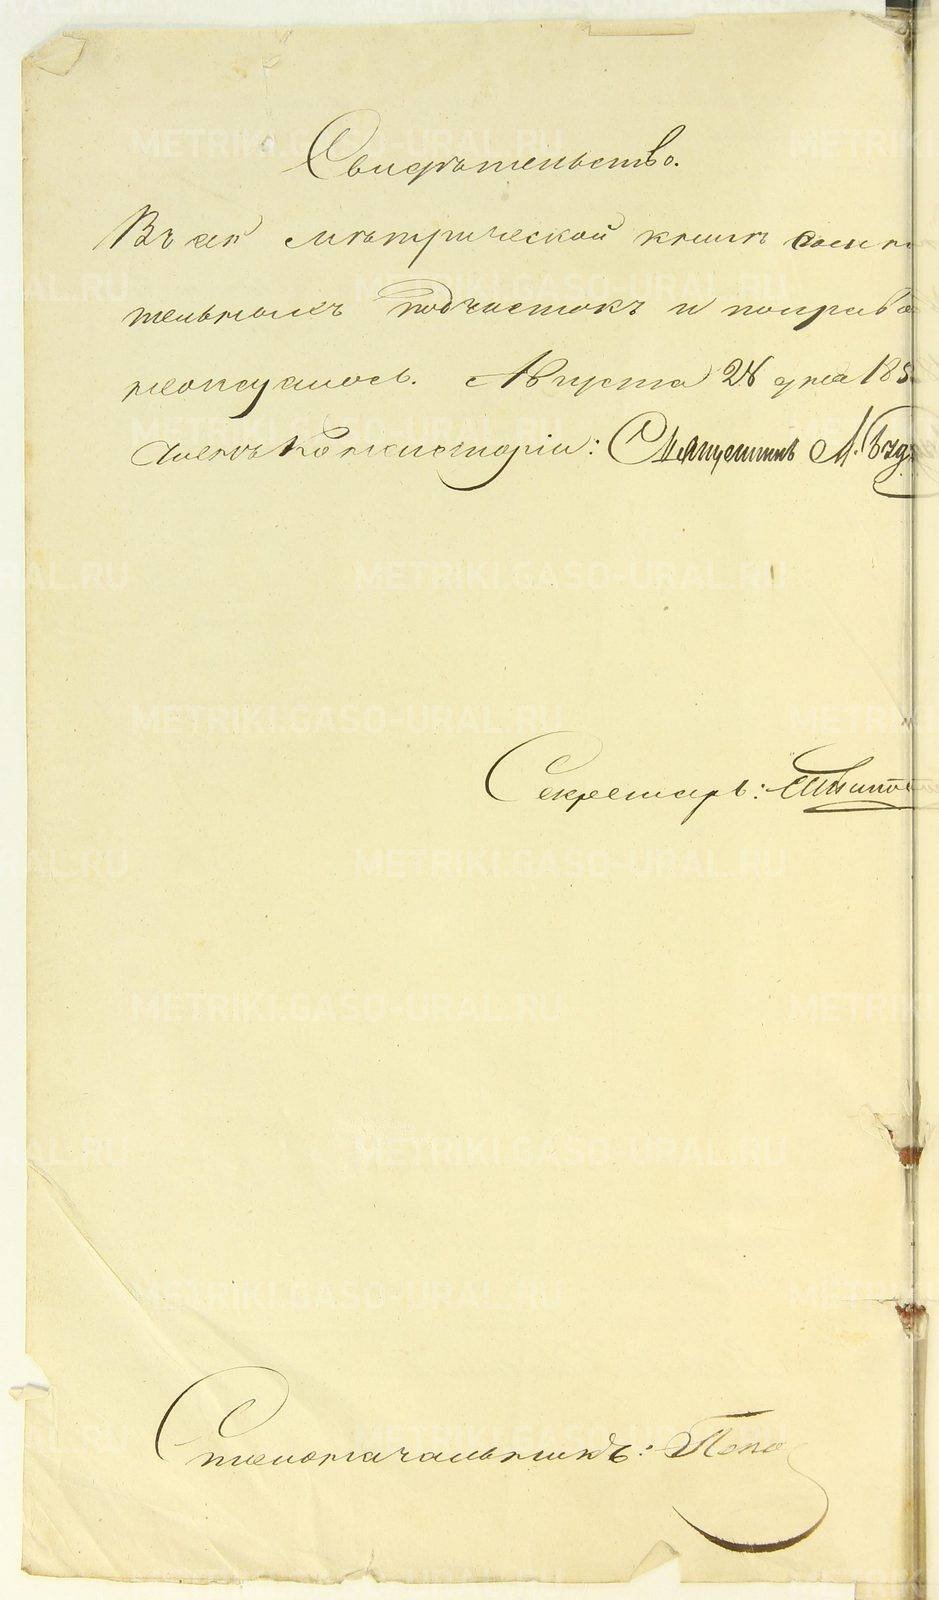 Свидѣтельство.
Въ сей мѣтрической книгѣ сомни
тельныхъ подчистокъ и поправо
неоказалось. Августа 28 дня 185
Членъ Консисторіи:
Секретарь:
Столоначальникъ: Попо
METRIKI.GASO-URAL.RU